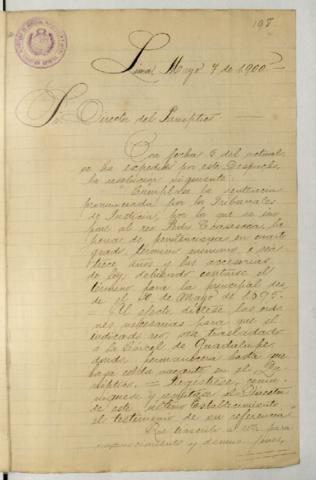 198
Lima, Mayo 7 de 1900
Sr. Director del Panóptico
Con fecha 5 del actual,
se ha expedido por este Despacho
la resolución siguiente:
"Cúmplase la sentencia
pronunciada por los Tribunales
de Justicia, por la que se im-
pone al reo Pedro la
pena de penitenciaría en cuarto
grado, término mínimo, ó sea
trece años, á las accesorias
de ley, debiendo contarse el
término para la principal des-
de el de Mayo de 1895.
= Al efecto dictese las órde-
nes necesarias para que el
indicado reo, sea trasladado
á la Cárcel de Guadalupe,
donde permanecerá hasta que
haya celda vacante en el Pa-
nóptico. = Regístrese, comu-
níquese y remítase al Director
de este último Establecimiento
el testimonio de su referencia"
Que trascribo á US. para
su conocimiento y demás fines,